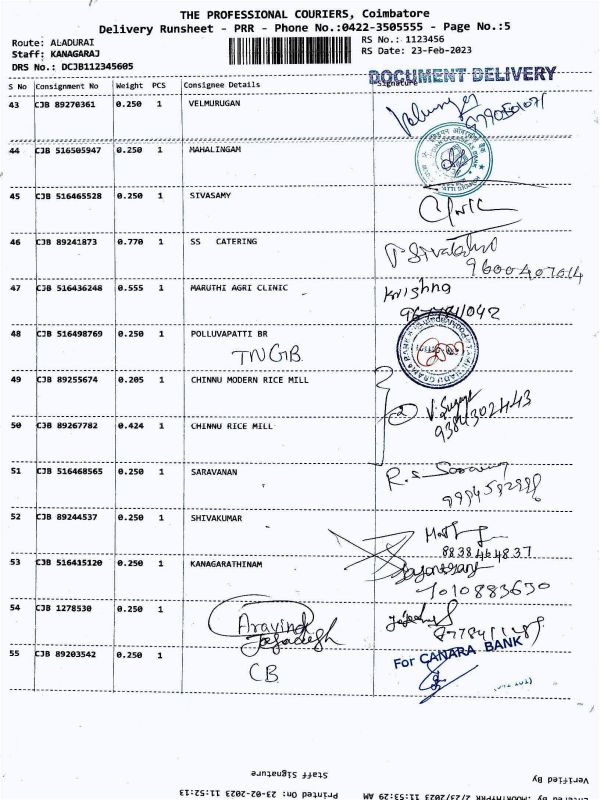 THE PROFESSIONAL COURIERS, Coimbatore
Delivery Runsheet - PRR - Phone No.:0422-3505555 - Page No.:5
Route: ALADURAI
RS No.: 1123456
Staff: KANAGARAJ
RS Date: 23-Feb-2023
DRS No.: DCJB112345605
DOCUMENT DELIVERY
S No Consignment No Weight PCS Consignee Details Signature
43 CJB 89270361 0.250 1 VELMURUGAN
44 CJB 516505947 0.250 1 MAHALINGAM
45 CJB 516465528 0.250 1 SIVASAMY
46 CJB 89241873 0.770 1 SS CATERING
9600407014
47 CJB 516436248 0.555 1 MARUTHI AGRI CLINIC Krishna
48 CJB 516498769 0.250 1 POLLUVAPATTI BR
TNGB
49 CJB 89255674 0.205 1 CHINNU MODERN RICE MILL
2
9384302443
50 CJB 89267782 0.424 1 CHINNU RICE MILL
51 CJB 516468565 0.250 1 SARAVANAN
52 CJB 89244537 0.250 1 SHIVAKUMAR
8838464837
53 CJB 516415120 0.250 1 KANAGARATHINAM
7010883650
54 CJB 1278530 0.250 1 Aravind
Jegadesh
55 CJB 89203542 0.250 1 CB
For CANARA BANK
Staff Signature
Verified By
Printed On: 23-02-2023 11:52:13
2/23/2023 11:53:29 AM